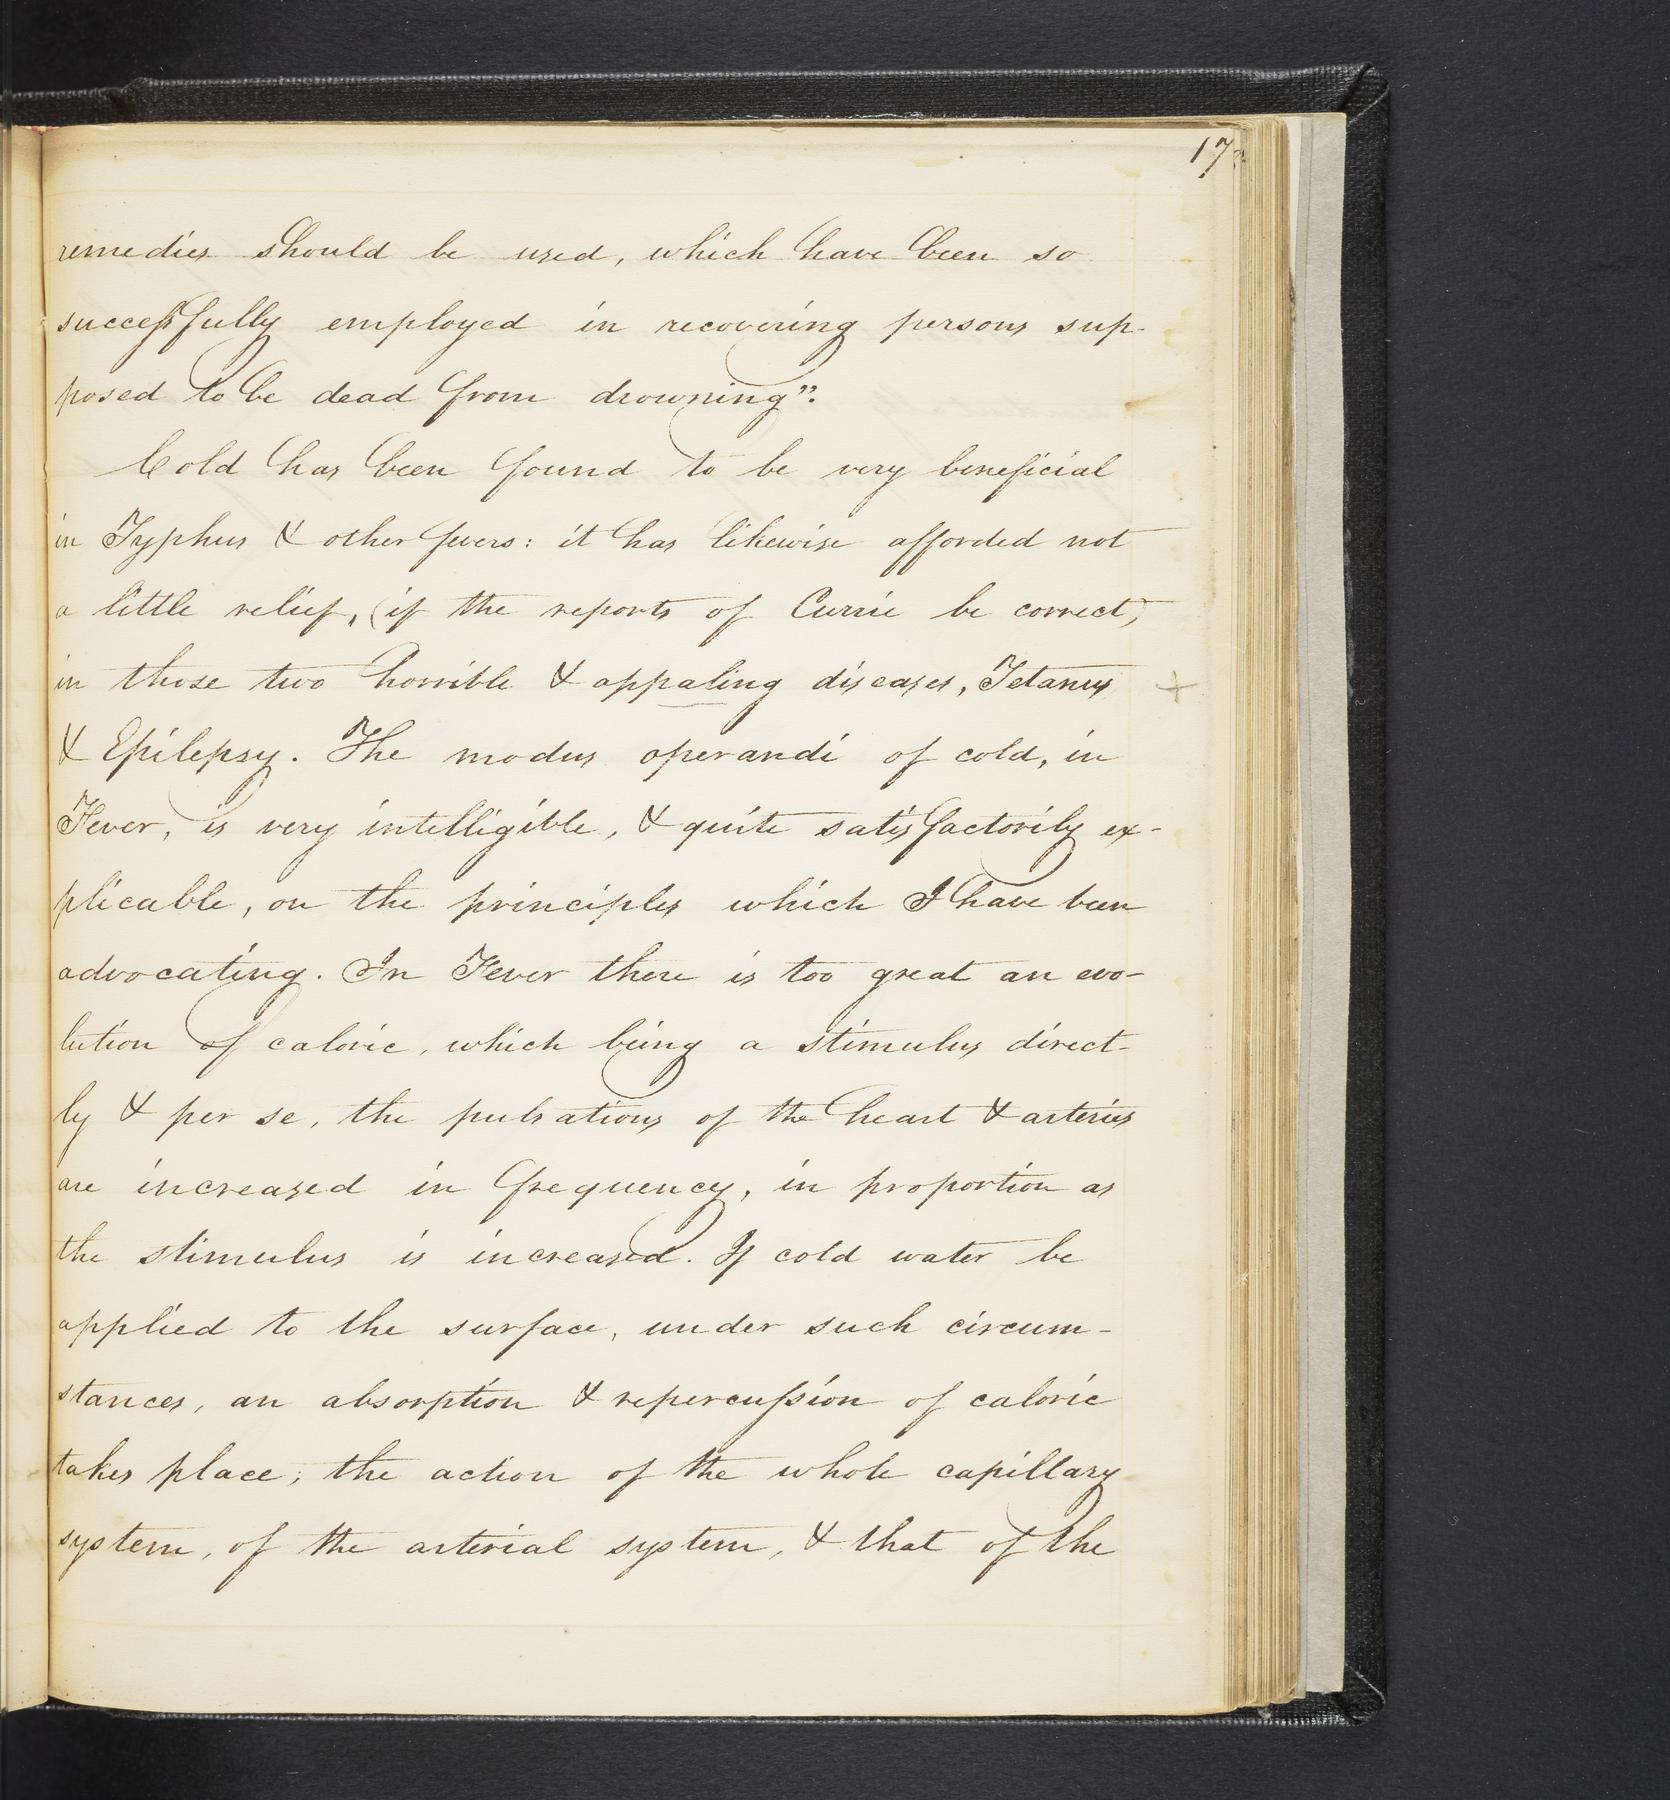 17
remedies should be used, which have been so
successfully employed in recovering persons sup-
posed to be dead from drowning".
Cold has been found to be very beneficial
in Typhus & other fevers: it has likewise afforded not
a little relief, (if the reports of Currie be correct)
in those two horrible & appaling diseases, Tetanus +
& Epilepsy. The modus operandi of cold, in
Fever, is very intelligible, & quite satisfactorily ex-
plicable, on the principles which I have been
advocating. In Fever there is too great an evo-
lution of caloric, which being a stimulus direct-
ly & per se, the pulsations of the heart & arteries
are increased in frequency, in proportion as
the stimulus is increased. If cold water be
applied to the surface, under such circum-
stances, an absorption & repercussion of caloric
takes place; the action of the whole capillary
system, of the arterial system, & that of the